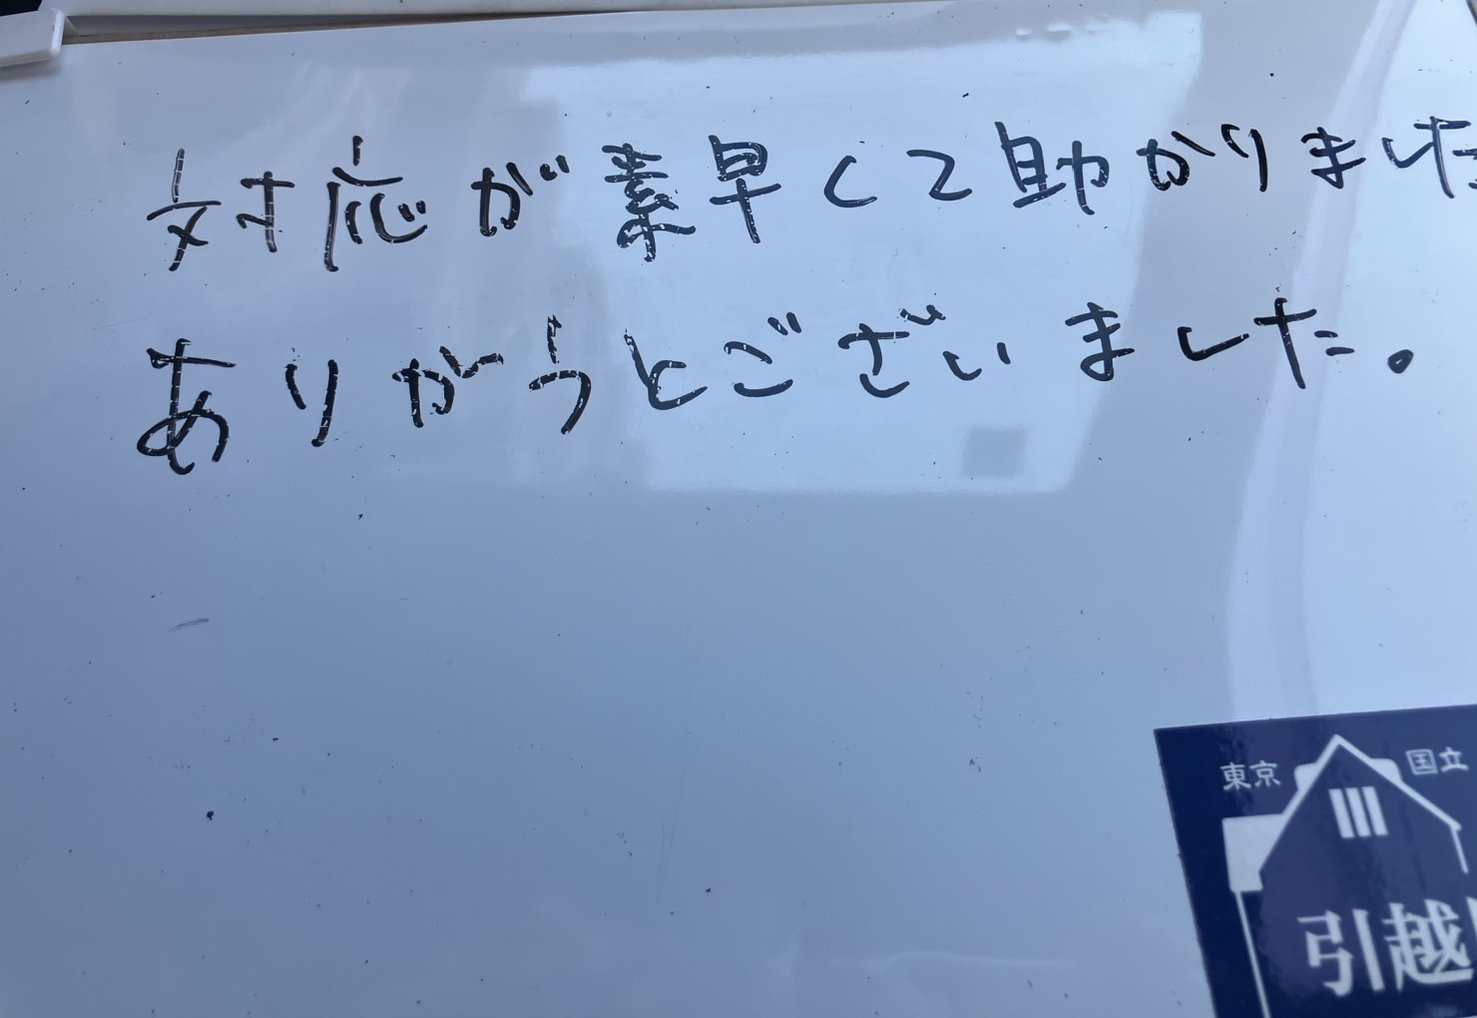 対応が素早くて助かりました
ありがうとございました。
東京 国立
引越